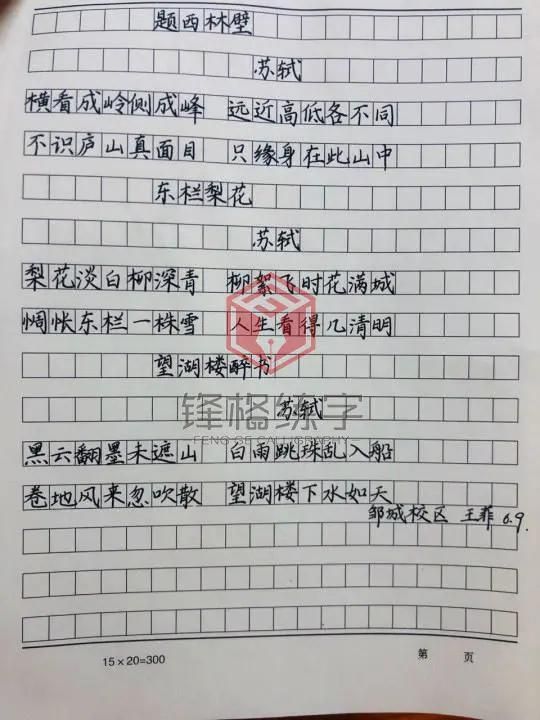 题西林壁
苏轼
横看成岭侧成峰 远近高低各不同
不识庐山真面目 只缘身在此山中
东栏梨花
苏轼
梨花淡白柳深青 柳絮飞时花满城
惆怅东栏一株雪 人生看得几清明
望湖楼醉书
苏轼
锋格练字
FENG GE CALLIGRAPHY
黑云翻墨未遮山 白雨跳珠乱入船
卷地风来忽吹散 望湖楼下水如天
邹城校区 王菲 6.9.
15×20=300 第 页